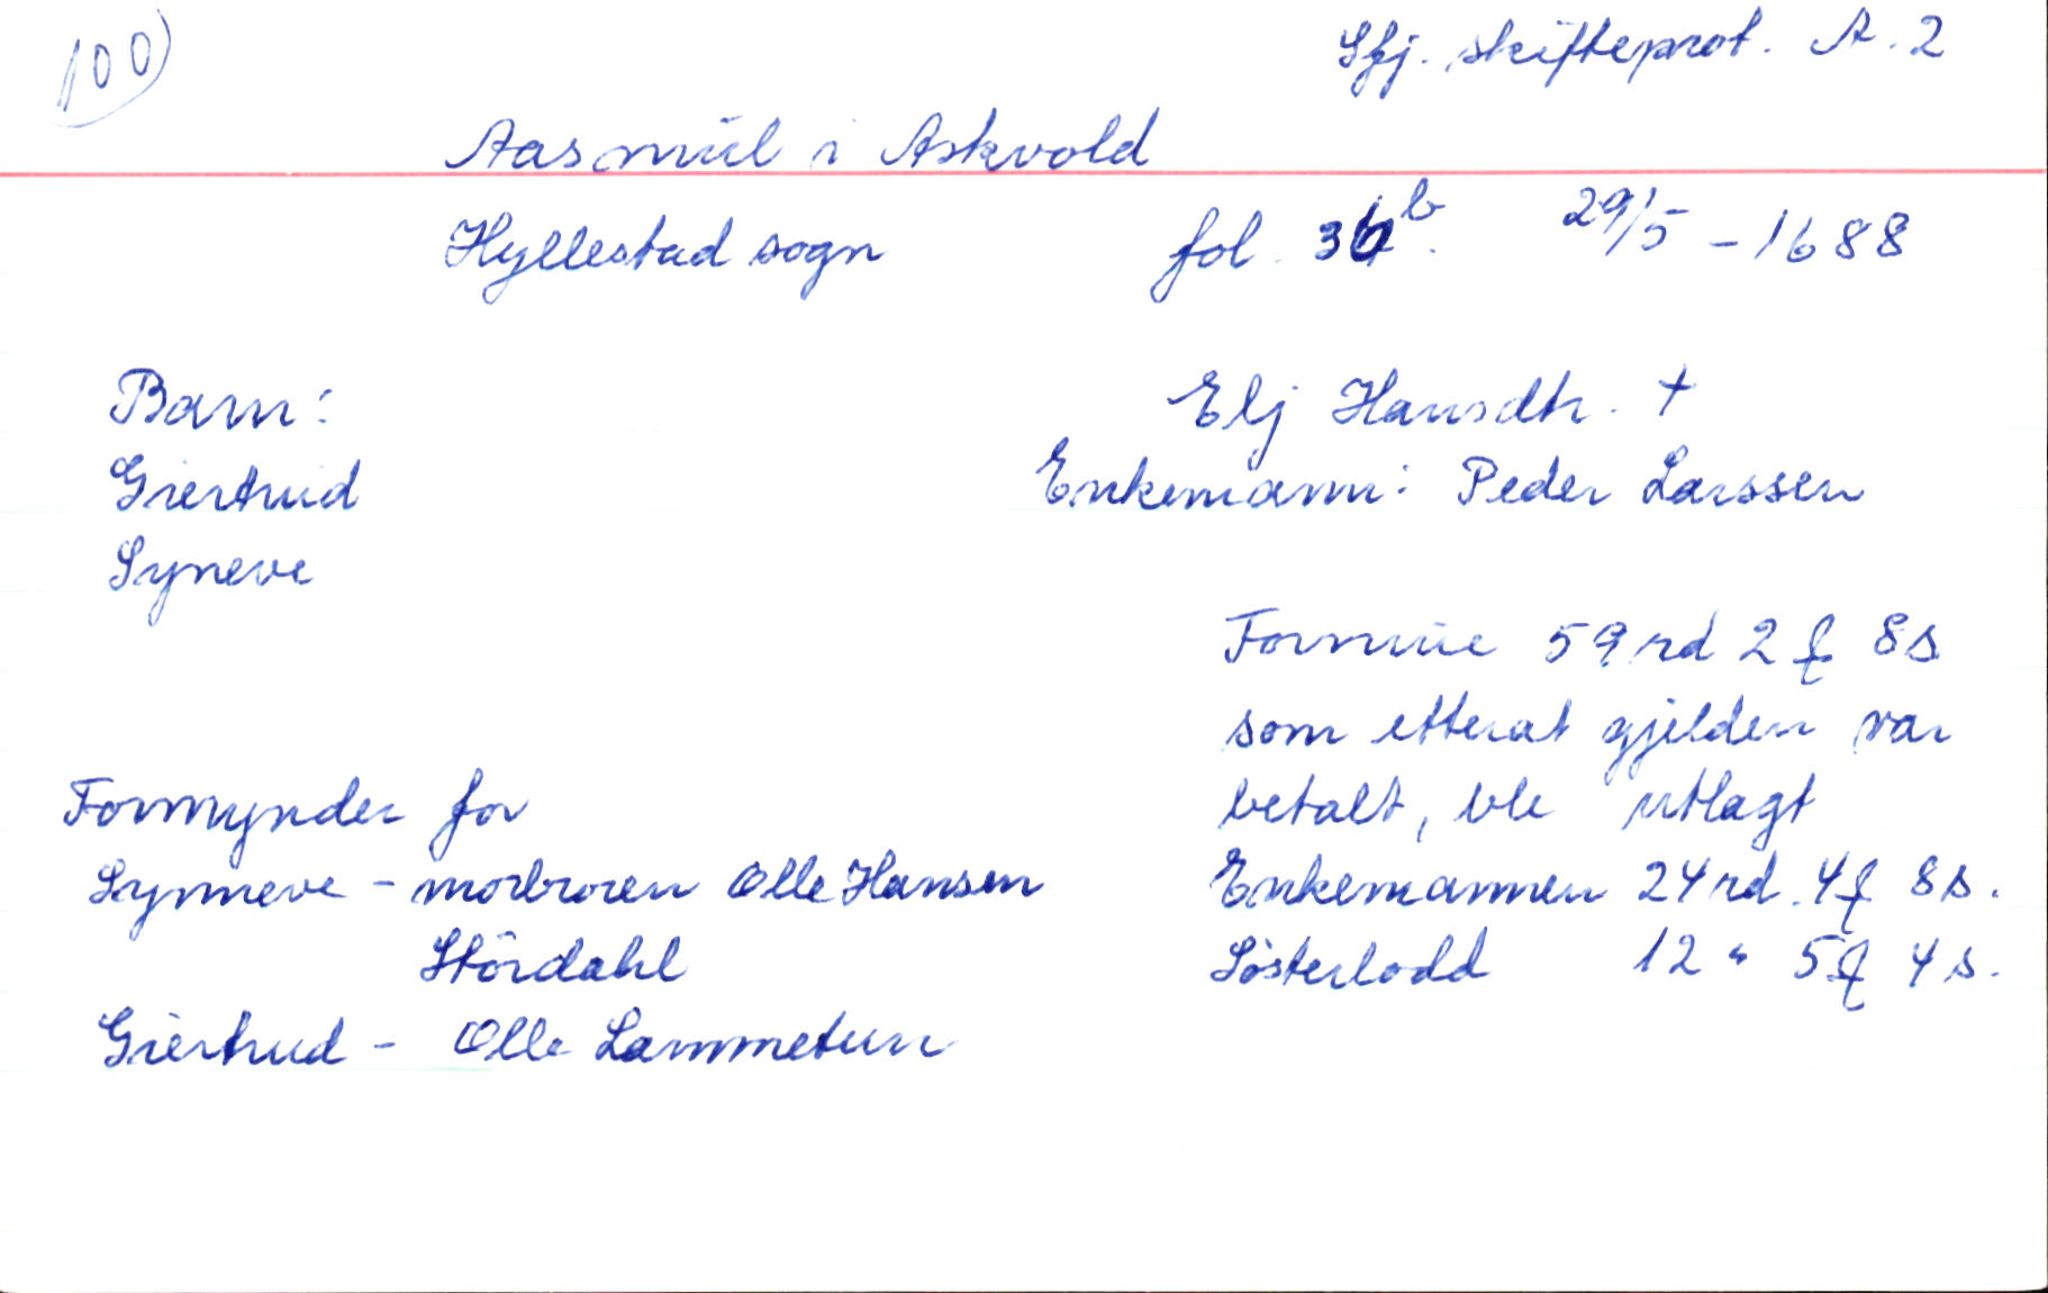 100)
Sfj. skifteprot. A. 2
Aasmul i Askvold
Hyllestad sogn fol. 36b. 29/5 - 1688
Barn:
Giertrud
Syneve
Elj Hansdtr. †
Enkemann: Peder Larssen
Formue 59 rd 2 ƒ 8 s
som etterat gjelden var
betalt, ble utlagt
Enkemannen 24 rd. 4 ƒ 8 s.
Søsterlodd 12 " 5 ƒ 4 s.
Formynder for
Synneve - morbroren Olle Hansen
Stördahl
Giertrud - Olle Lammetun